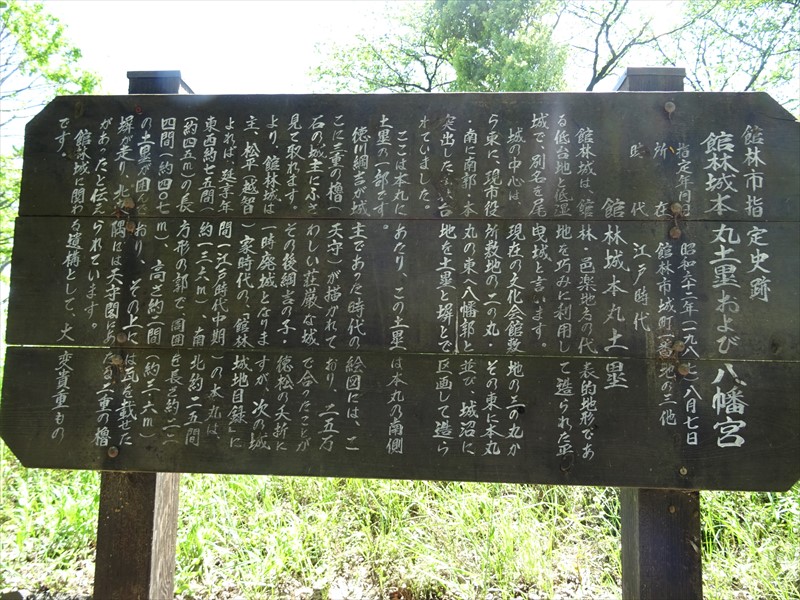 館林市指定史跡
館林城本丸土塁および八幡宮
指定年月日 昭和六十二年(一九八七)八月七日
所在 館林市城町一番地の二他
時代 江戸時代
館林城本丸土塁
館林城は、館林・邑楽地方の代表的地形であ
る低台地と低湿地を巧みに利用して造られた平
城で、別名を尾曳城と言います。
城の中心は、現在の文化会館敷地の三の丸か
ら東に、現市役所敷地の二の丸・その東に本丸
・南に南郭・本丸の東へ八幡郭と並び、城沼に
突出した台地を土塁と塀とで区画して造ら
れていました。
ここは本丸にあたり、この土塁は本丸の南側
土塁の一部です。
徳川綱吉が城主であった時代の絵図には、こ
こに三重の櫓(天守)が描かれており、二五万
石の城主にふさわしい荘厳な城であったことが
見て取れます。その後綱吉の子・徳松の夭折に
より、館林城は一時廃城となりますが、次の城
主、松平(越智)家時代の、「館林城地目録」に
よれば、延享年間(江戸時代中期)の本丸は、
東西約七五間(約一三六m)、南北約二五間
(約四五m)の長方形の郭で、周囲を長さ約二二
四間(約四〇七m)、高さ約一間(約三・六m)
の土塁が囲んでおり、その上には瓦を載せた
塀が走り、北西隅には天守閣にあたる二重の櫓
があったと伝えられています。
館林城に関わる遺構として、大変貴重もの
です。